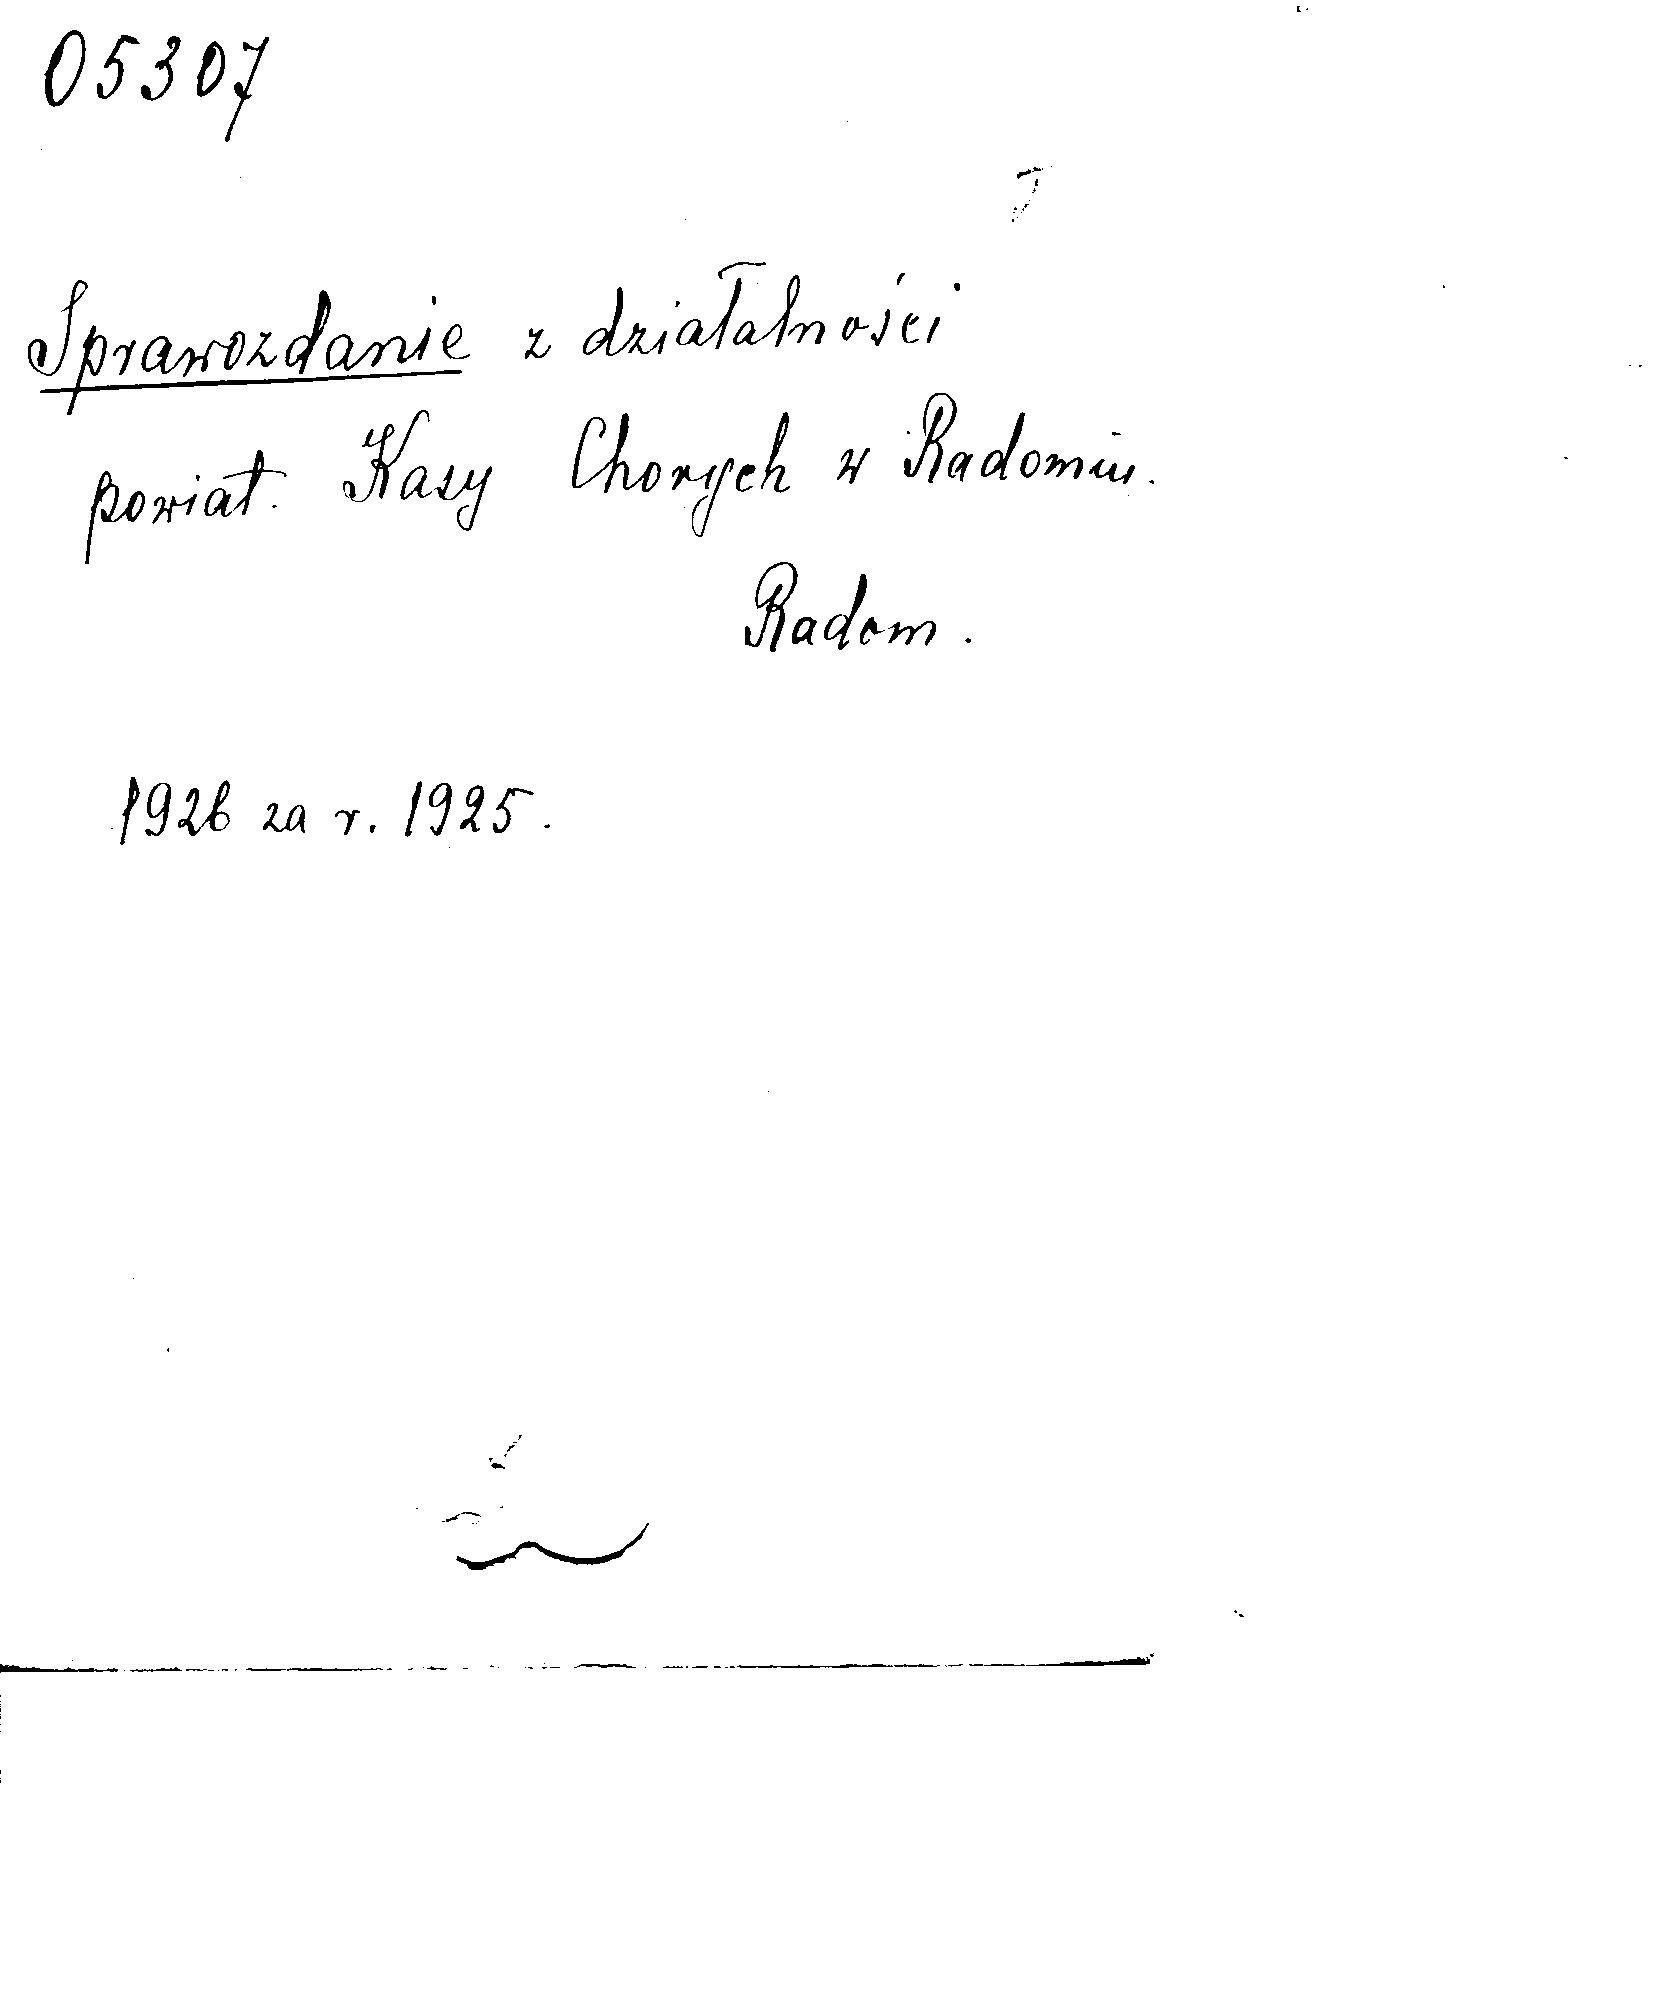 05307
Sprawozdanie z działalności
powiat. Kasy Chorych w Radomiu.
Radom.
1926 za r. 1925.